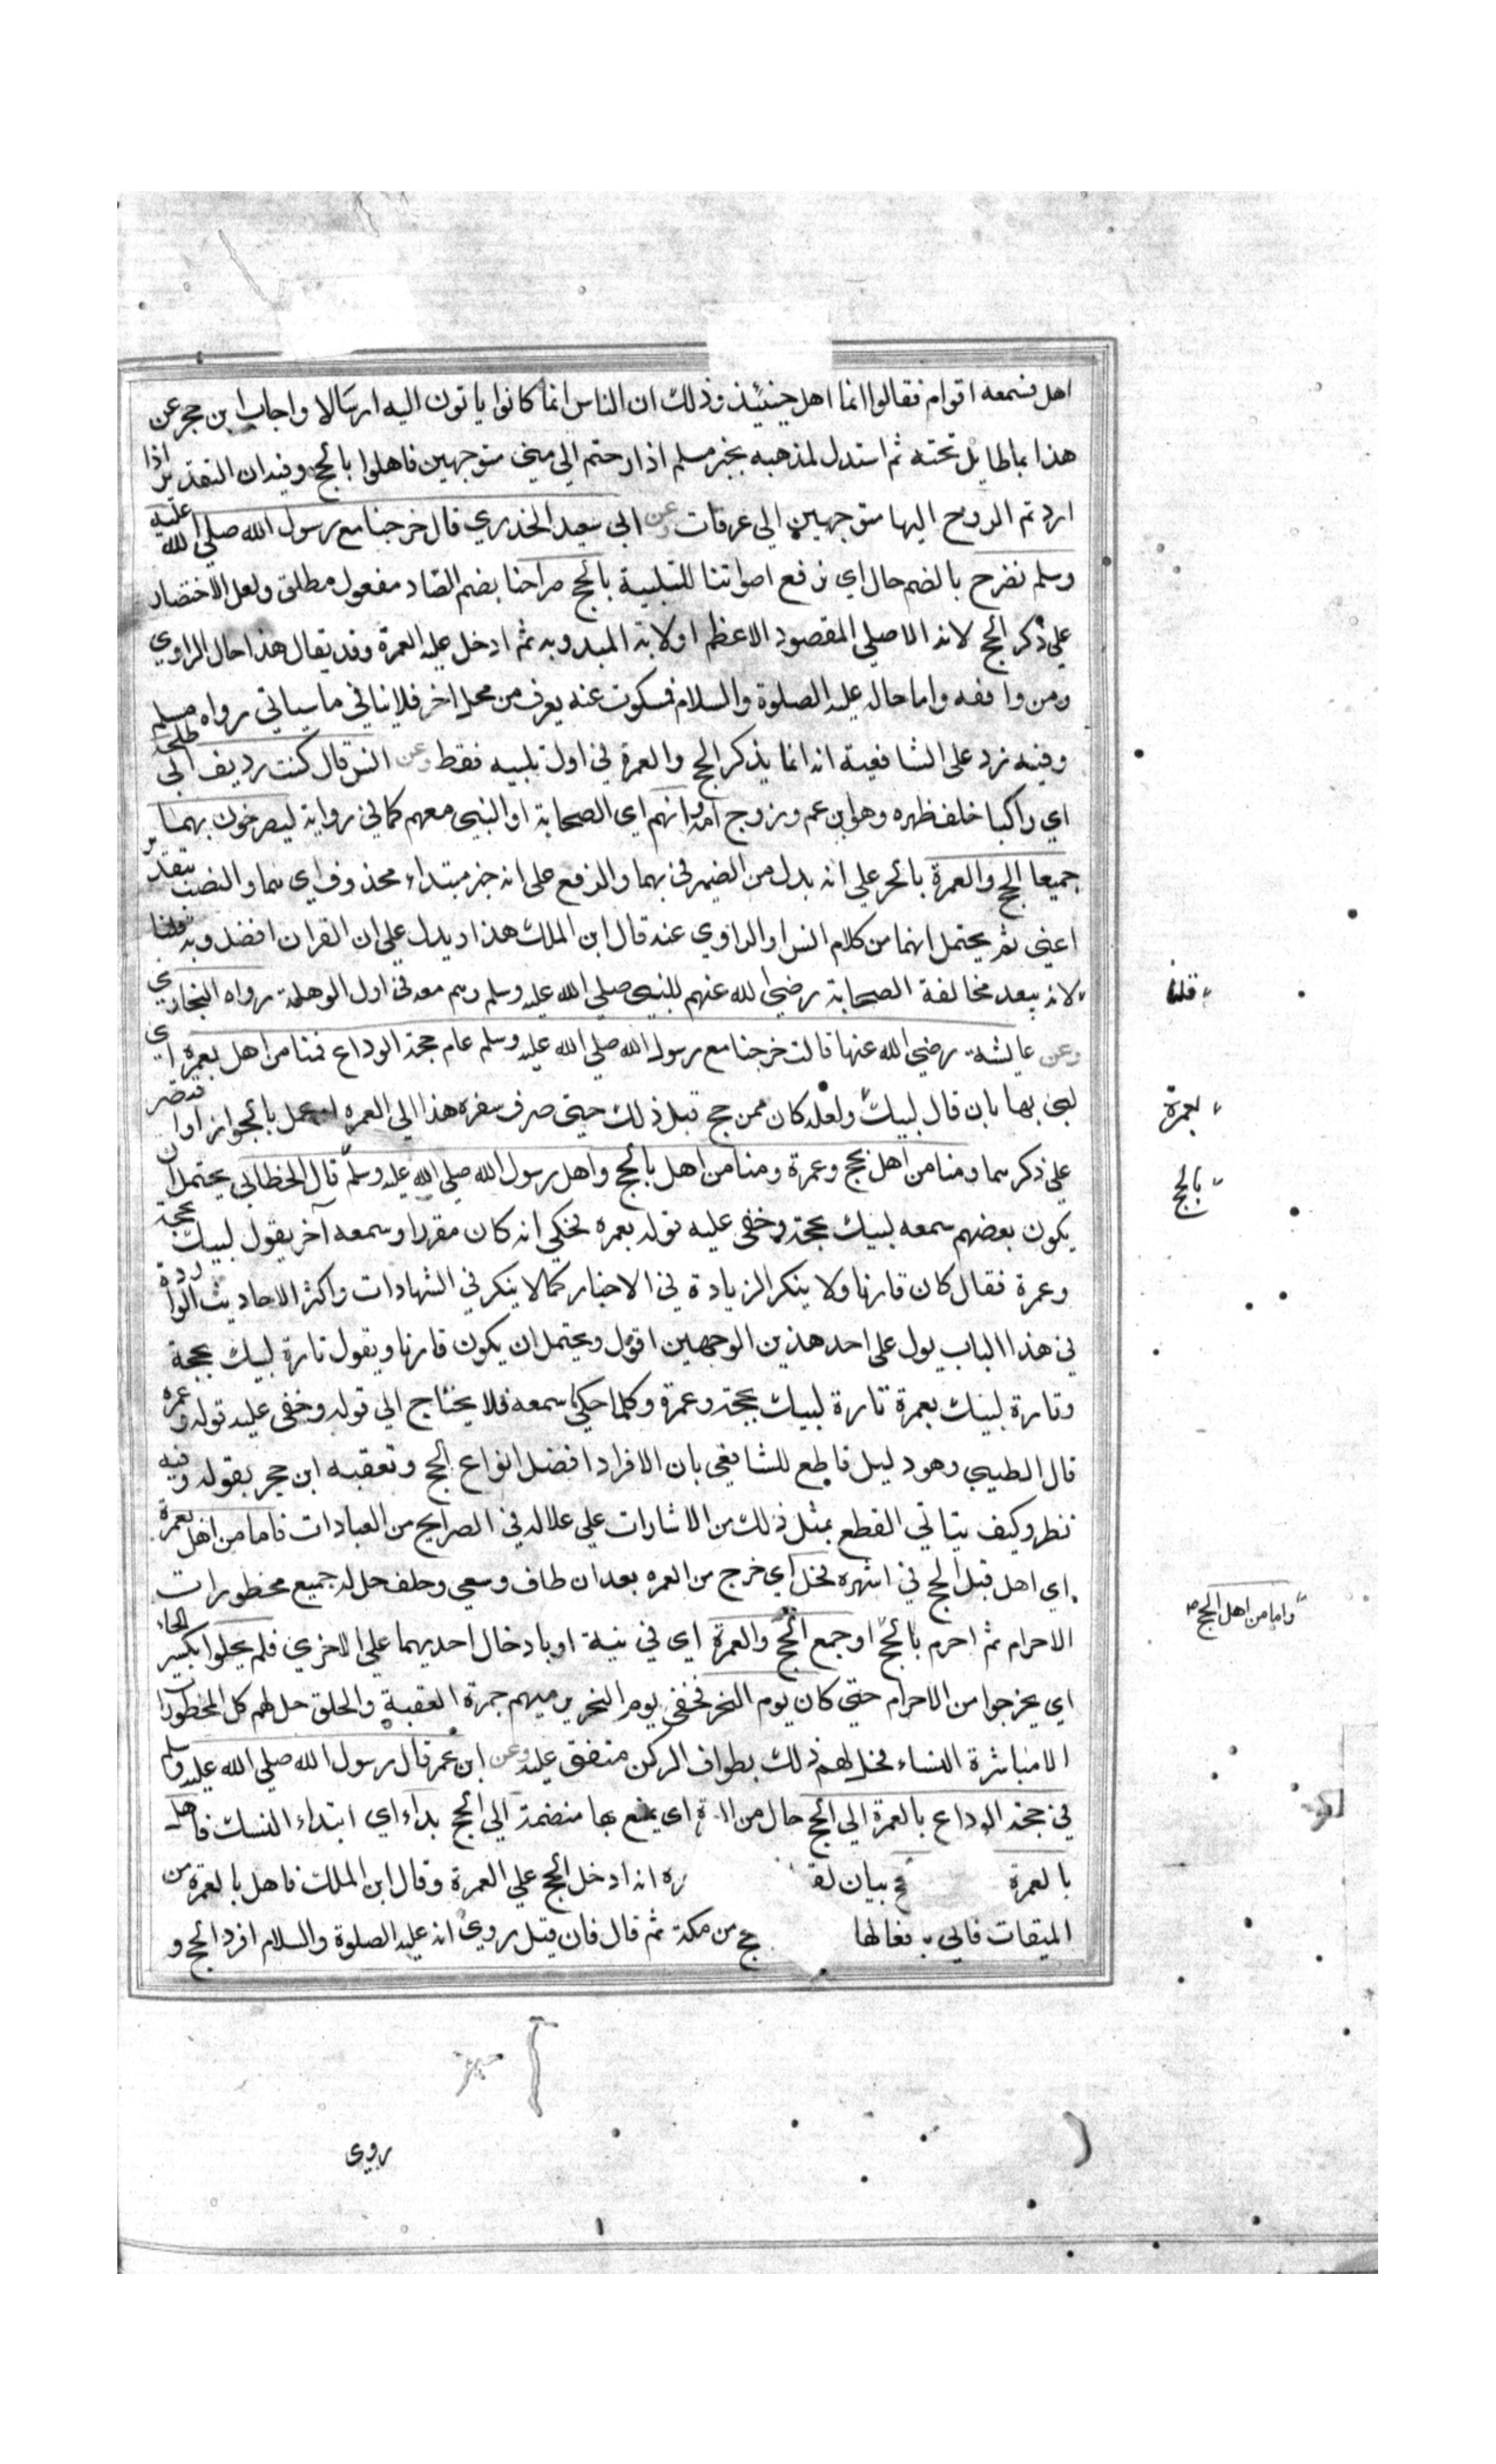 اهل فسمعه اقوام فقالوا انما اهل حينئذ وذلك ان الناس انما كانوا ياتون اليه ارسالا واجاب ابن حجر عن
هذا بما لا طايل تحته ثم استدل لمذهبه بخبر مسلم اذا رحتم الي مني متوجهين فاهلوا بالحج وفيه ان التقدير اذا
اردتم الروح اليها متوجهين الي عرفات وعن ابي سعيد الخدري قال خرجنا مع رسول الله صلي الله عليه
وسلم نصرح بالضم حال اي نرفع اصواتنا للتلبية بالحج صراحنا بضم الصاد مفعول مطلق ولعل الاختصار
علي ذكر الحج لانه الاصلي المقصود الاعظم اولانه المبدو به ثم ادخل عليه العمرة وقد يقال هذا حال الراوي
ومن وافقه واما حاله عليه الصلوة والسلام فمسكوت عنه يعرف من محل اخر فلا ينافي ما سياتي رواه مسلم
وفيه رد علي الشافعية انه انما يذكر الحج والعمرة في اول تلبيه فقط وعن انس قال كنت رديف ابي طلحة
اي راكبا خلف ظهره وهو ابن عم وزوج امه وانهم اي الصحابة او النبي معهم كما في رواية ليصرخون بهما
جميعا الحج والعمرة بالجر علي انه بدل من الضمير في بهما والرفع علي انه خبر مبتداء محذوف اي هما والنصب بتقدير
اعني ثم يحتمل انهما من كلام انس او الراوي عنه قال ابن الملك هذا ويدل علي ان القران افضل وبه قلنا
لانه يبعد مخالفة الصحابة رضي الله عنهم للنبي صلي الله عليه وسلم وهم معه في اول الوهلة رواه البخاري
وعن عايشة رضي الله عنها قالت خرجنا مع رسول الله صلي الله عليه وسلم عام حجة الوداع فمنا من اهل بعمرة اي
لبي بها بان قال لبيك ولعله كان ممن حج قبل ذلك حيتي صرف سفره هذا الي العمره عمل بالجواز او اقتصر
علي ذكرهما ومنا من اهل بحج وعمرة ومنا من اهل بالحج واهل رسول الله صلي الله عليه وسلم قال الخطابي يحتمل ان
يكون بعضهم سمعه لبيك بحجة وخفي عليه قوله بعمره فحكي انه كان مفردا وسمعه آخر يقول لبيك بحجة
وعمرة فقال كان قارنا ولا ينكر الزيادة في الاخبار كما لا ينكر في الشهادات واكثر الاحاديث الواردة
في هذا الباب يول علي احد هذين الوجهين اقول ويحتمل ان يكون قارنا ويقول تارة لبيك بحجة
وتارة لبيك بعمرة تارة لبيك بحجة وعمرة وكلما حكي سمعه فلا يحتاج الي قوله وخفي عليه قوله وعمره
قال الطيبي وهو دليل قاطع للشافعي بان الافراد افضل انواع الحج وتعقبه ابن حجر بقوله وفيه
نظر وكيف يتاتي القطع بمثل ذلك من الاشارات علي علاله في الصرايح من العبادات فاما من اهل بعمرة
اي اهل قبل الحج في اشهره فحل اي خرج من العمره بعد ان طاف وسعي وحلف حل له جميع محظورات
الاحرام ثم احرم بالحج او جمع الحج والعمرة اي في نية او بادخال احديهما علي الاخري فلم يحلوا بكسر الحاء
اي يخرجوا من الاحرام حتي كان يوم النحر فخفي يوم النحر برميهم جمرة العقبة والحلق حل لهم كل المحظورات
الا مباشرة النساء فحل لهم ذلك بطواف الركن متفق عليه وعن ابن عمر قال رسول الله صلي الله عليه وسلم
في حجة الوداع بالعمرة الي الحج حال من اي يمتع بها منضمة الي الحج بداء اي ابتداء النسك فاهل
بالعمرة بيان لقـ ره انه ادخل الحج علي العمرة وقال ابن الملك فاهل بالعمرة من
الميقات فاتي بافعالها حج من مكة ثم قال فان قيل روي انه عليه الصلوة والسلام افرد الحج و
روي
قلنا
بعمرة
بالحج
واما من اهل الحج